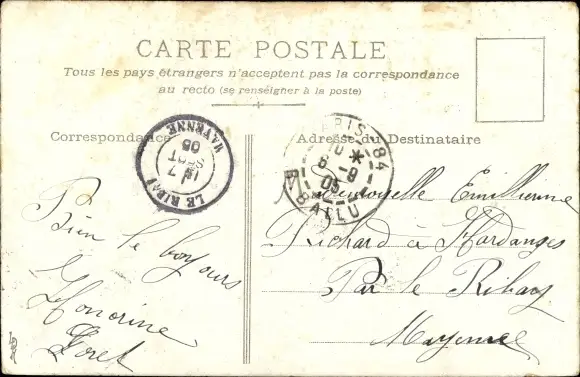 CARTE POSTALE
Tous les pays étrangers n'acceptent pas la correspondance
au recto (se renseigner à la poste)
Correspondance
Adresse du Destinataire
LE RIBAY
7
SEPT
05
MAYENNE
PARIS 84
10 *
6 - 9
05
R. BALLU
Bien le bonjours
Honorine
Foret
Demoiselle Emillienne
Richard à Hardanges
Par le Ribay
Mayenne